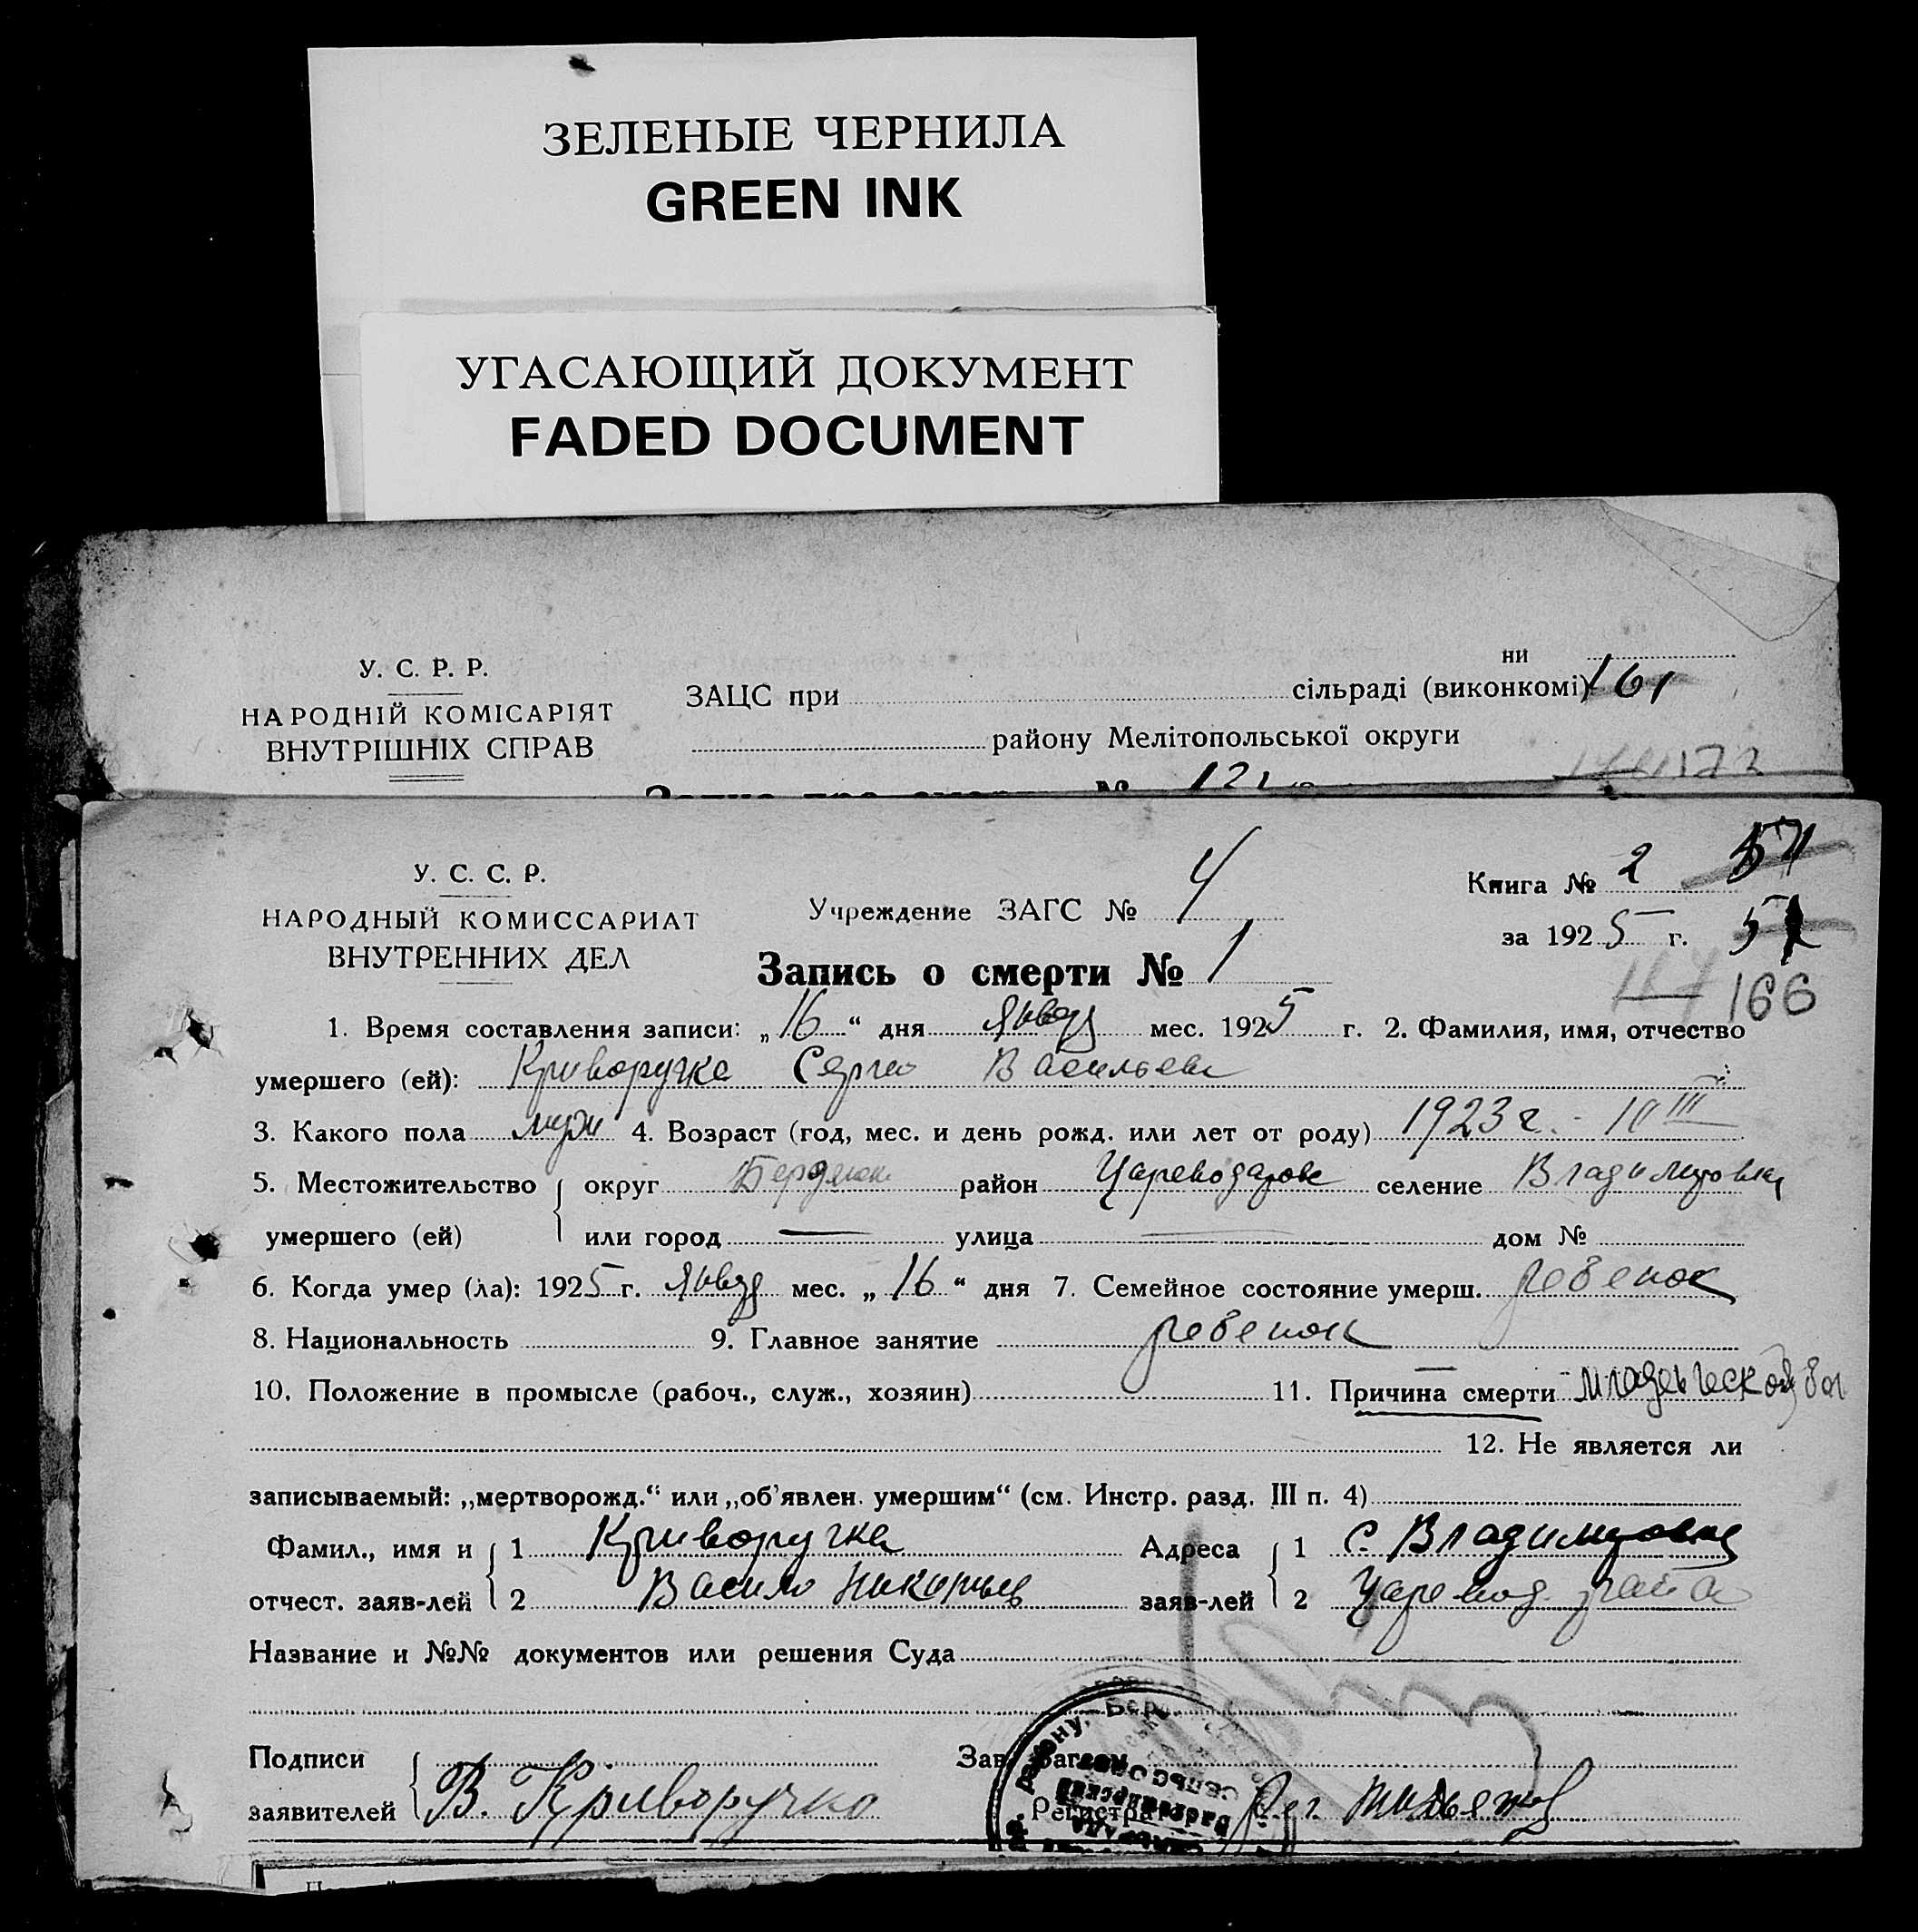 ЗЕЛЕНЫЕ ЧЕРНИЛА
GREEN INK
УГАСАЮЩИЙ ДОКУМЕНТ
FADED DOCUMENT
У. С. Р. Р.
НАРОДНІЙ КОМІСАРІЯТ
ВНУТРІШНІХ СПРАВ
ни
ЗАЦС при сільраді (виконкомі) 161
району Мелітопольської округи
172
У. С. С. Р.
НАРОДНЫЙ КОМИССАРИАТ
ВНУТРЕННИХ ДЕЛ
Учреждение ЗАГС № 4
Книга № 2
за 1925 г.
166
Запись о смерти № 1
1. Время составления записи: „16“ дня январ мес. 1925 г. 2. Фамилия, имя, отчество
умершего (ей): Криворучко Сергей Васильев
3. Какого пола муж 4. Возраст (год, мес. и день рожд. или лет от роду) 1923 г. - 10 III
5. Местожительство округ Бердянск район Цареводаров селение Владимировка
умершего (ей) или город — улица — дом №
6. Когда умер (ла): 1925 г. январ мес. „16“ дня 7. Семейное состояние умерш. ребенок
8. Национальность 9. Главное занятие ребенок
10. Положение в промысле (рабоч., служ., хозяин) — 11. Причина смерти младенческой бол
12. Не является ли
записываемый: „мертворожд.“ или „об’явлен. умершим“ (см. Инстр. разд. III п. 4)
Фамил., имя и 1 Криворучка Адреса 1 с. Владимировка
отчест. заяв-лей 2 Васило заяв-лей 2 Царевод района
Название и №№ документов или решения Суда
Подписи Зав. Загсом
заявителей В. Криворучко Регистра